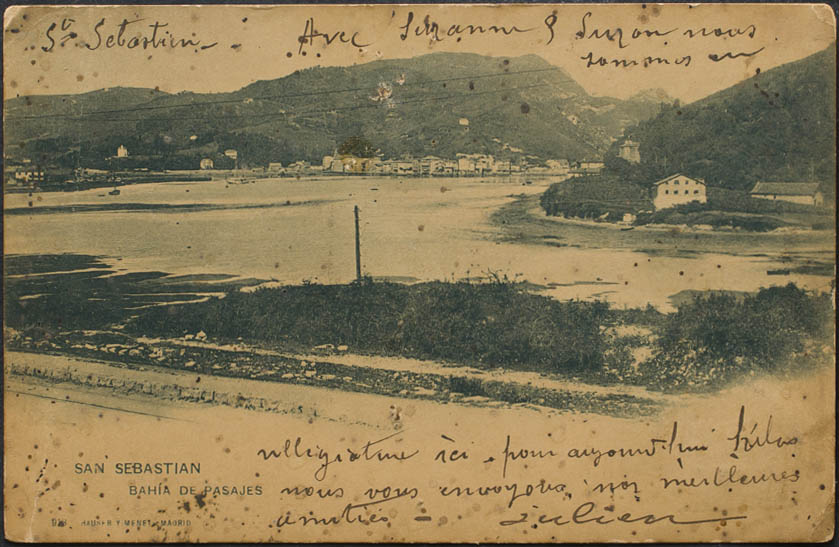 St Sebastien -
Avec Suzanne & Suzon nous
sommes en
villégiature ici, pour aujourd'hui hélas
nous vous envoyons, nos meilleures
amitiés - Julien
SAN SEBASTIAN
BAHÍA DE PASAJES
HAUSER Y MENET.-MADRID